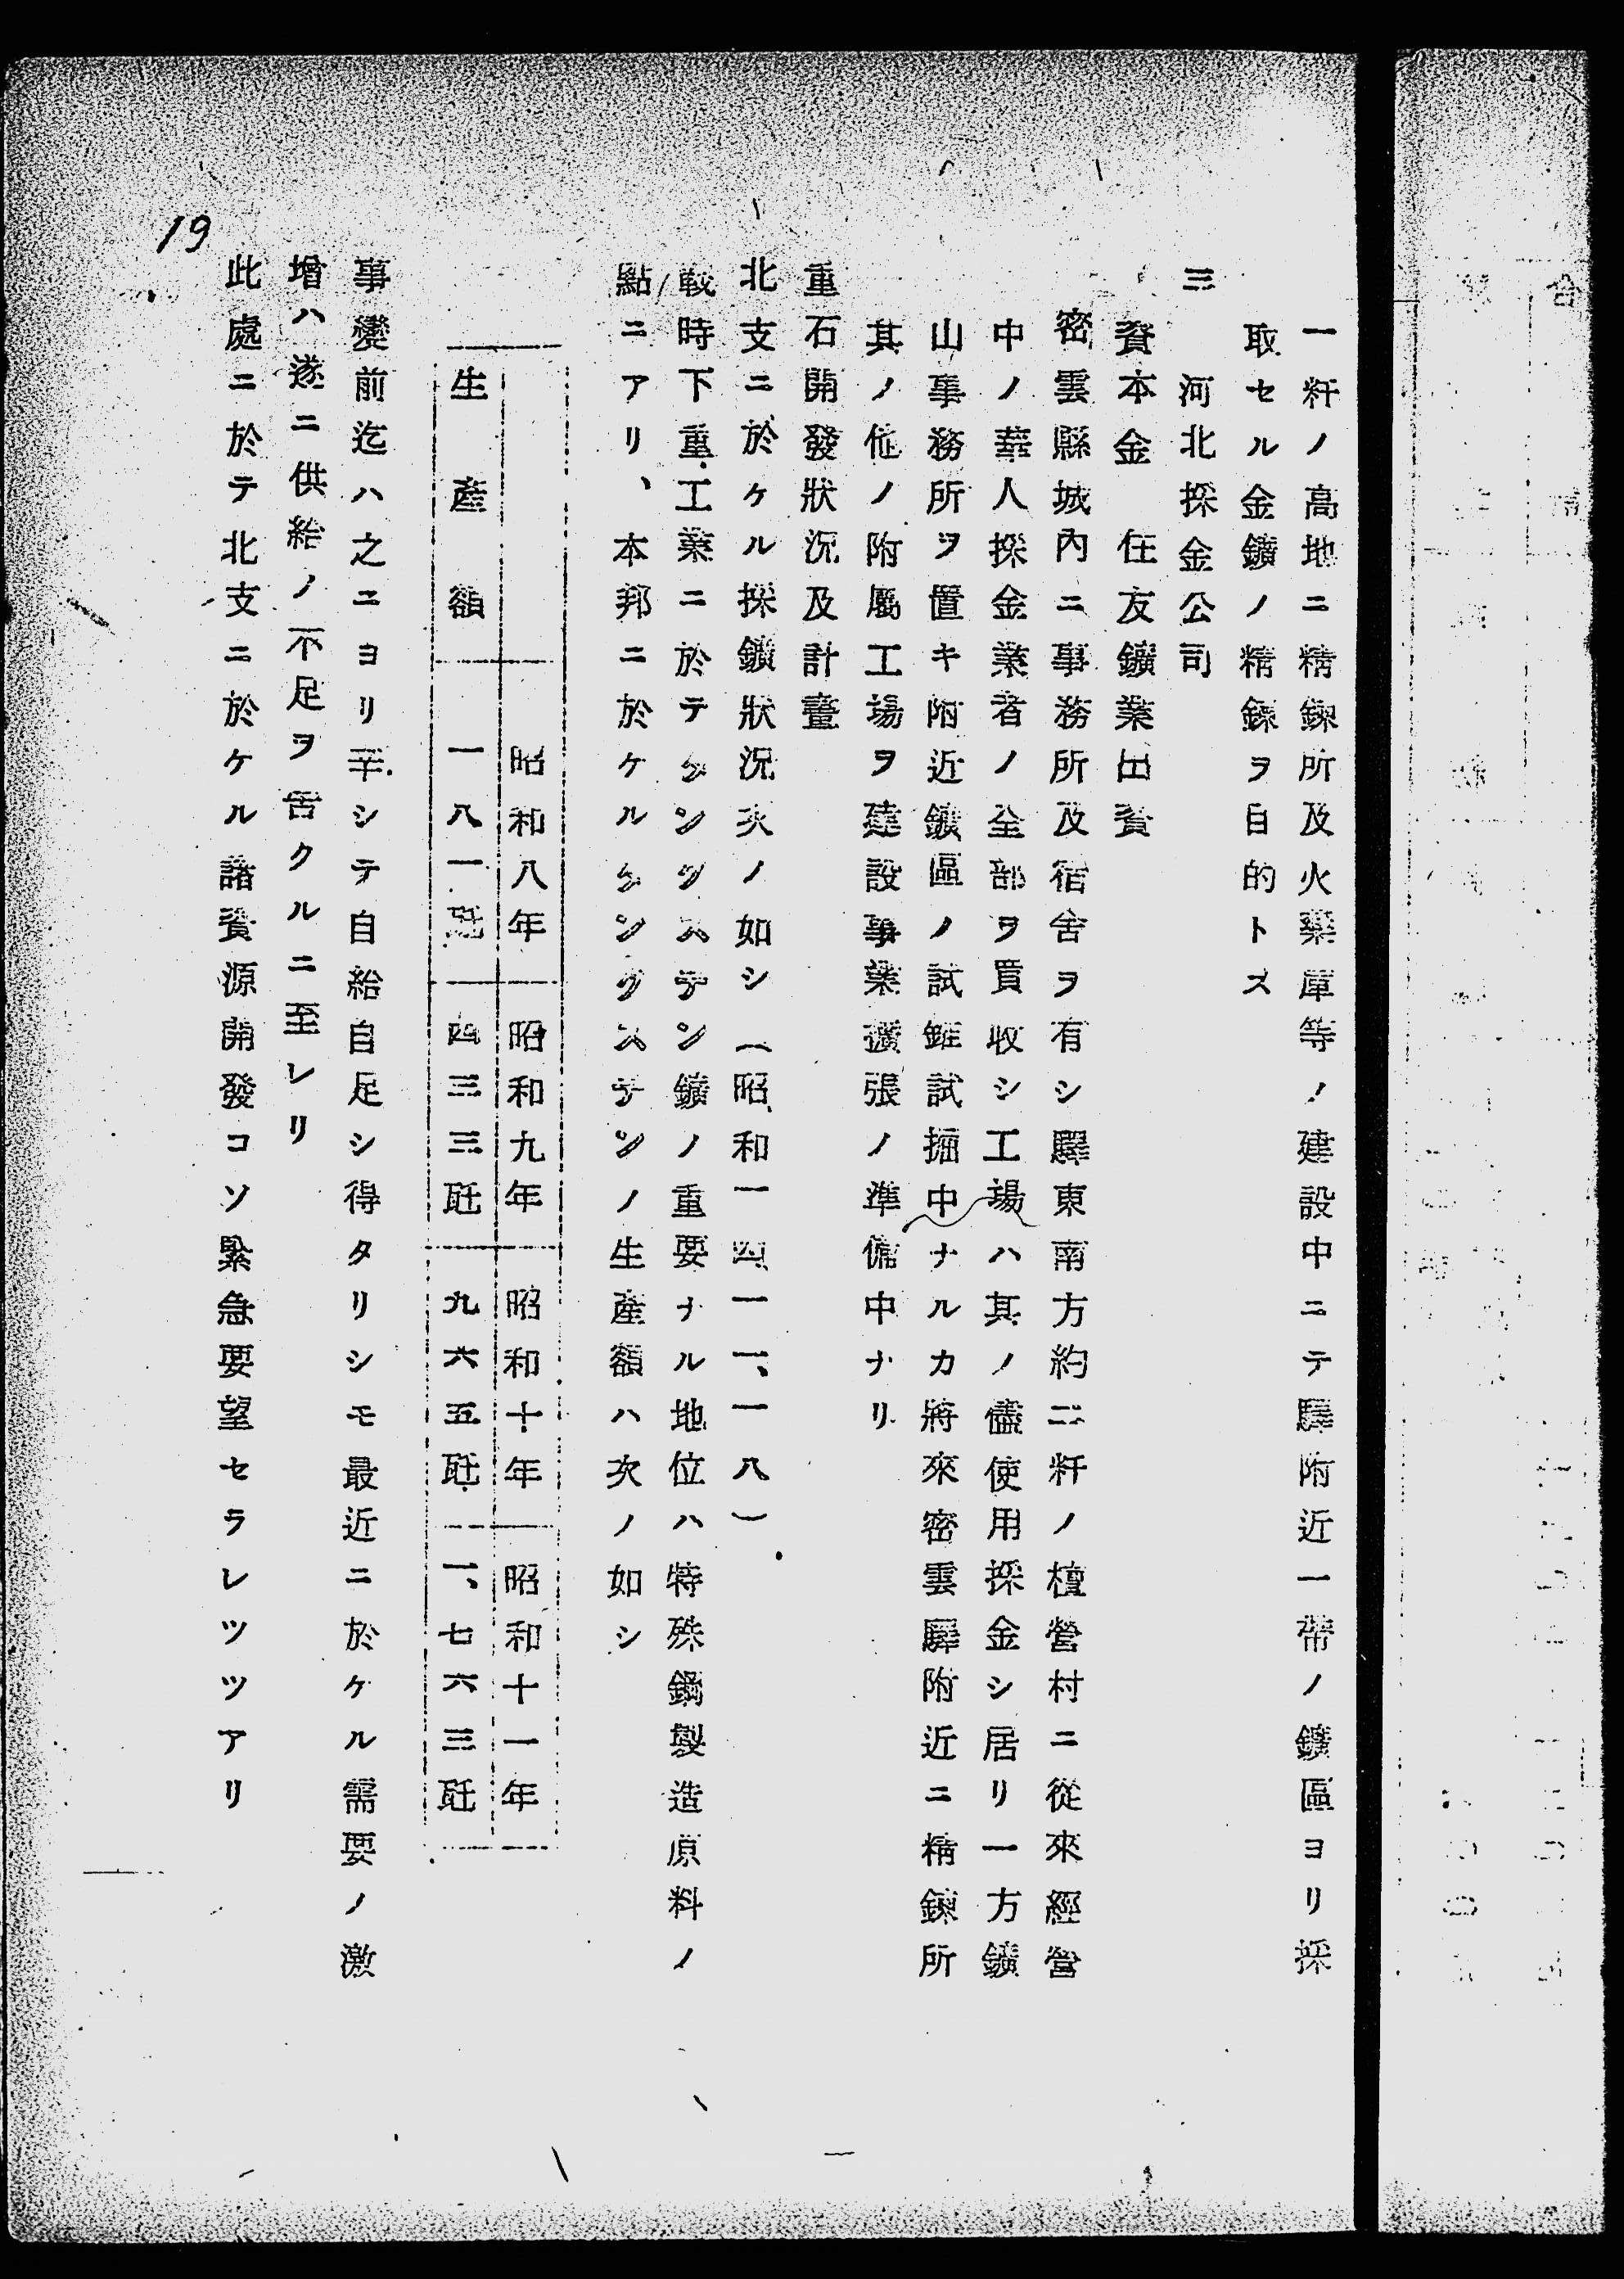 一粁ノ高地ニ精鍊所及火藥庫等ノ建設中ニテ驛附近一帶ノ鑛區ヨリ採
取セル金鑛ノ精鍊ヲ目的トス
三 河北採金公司
資本金 住友鑛業出資
密雲縣城內ニ事務所及宿舍ヲ有シ驛東南方約二粁ノ檀營村ニ從來經營
中ノ華人採金業者ノ全部ヲ買收シ工場ハ其ノ儘使用採金シ居リ一方鑛
山事務所ヲ置キ附近鑛區ノ試錐試掘中ナルカ將來密雲驛附近ニ精鍊所
其ノ他ノ附屬工場ヲ建設事業擴張ノ準備中ナリ
重石開發狀況及計畫
北支ニ於ケル採鑛狀況次ノ如シ（昭和一四、一一、一八）
戰時下重工業ニ於テタングステン鑛ノ重要ナル地位ハ特殊鋼製造原料ノ
點ニアリ、本邦ニ於ケルタングステンノ生產額ハ次ノ如シ
昭和八年 昭和九年 昭和十年 昭和十一年
生產額 一八一瓩 四三三瓩 九六五瓩 一、七六三瓩
事變前迄ハ之ニヨリ辛シテ自給自足シ得タリシモ最近ニ於ケル需要ノ激
增ハ遂ニ供給ノ不足ヲ吿クルニ至レリ
此處ニ於テ北支ニ於ケル諸資源開發コソ緊急要望セラレツツアリ
19